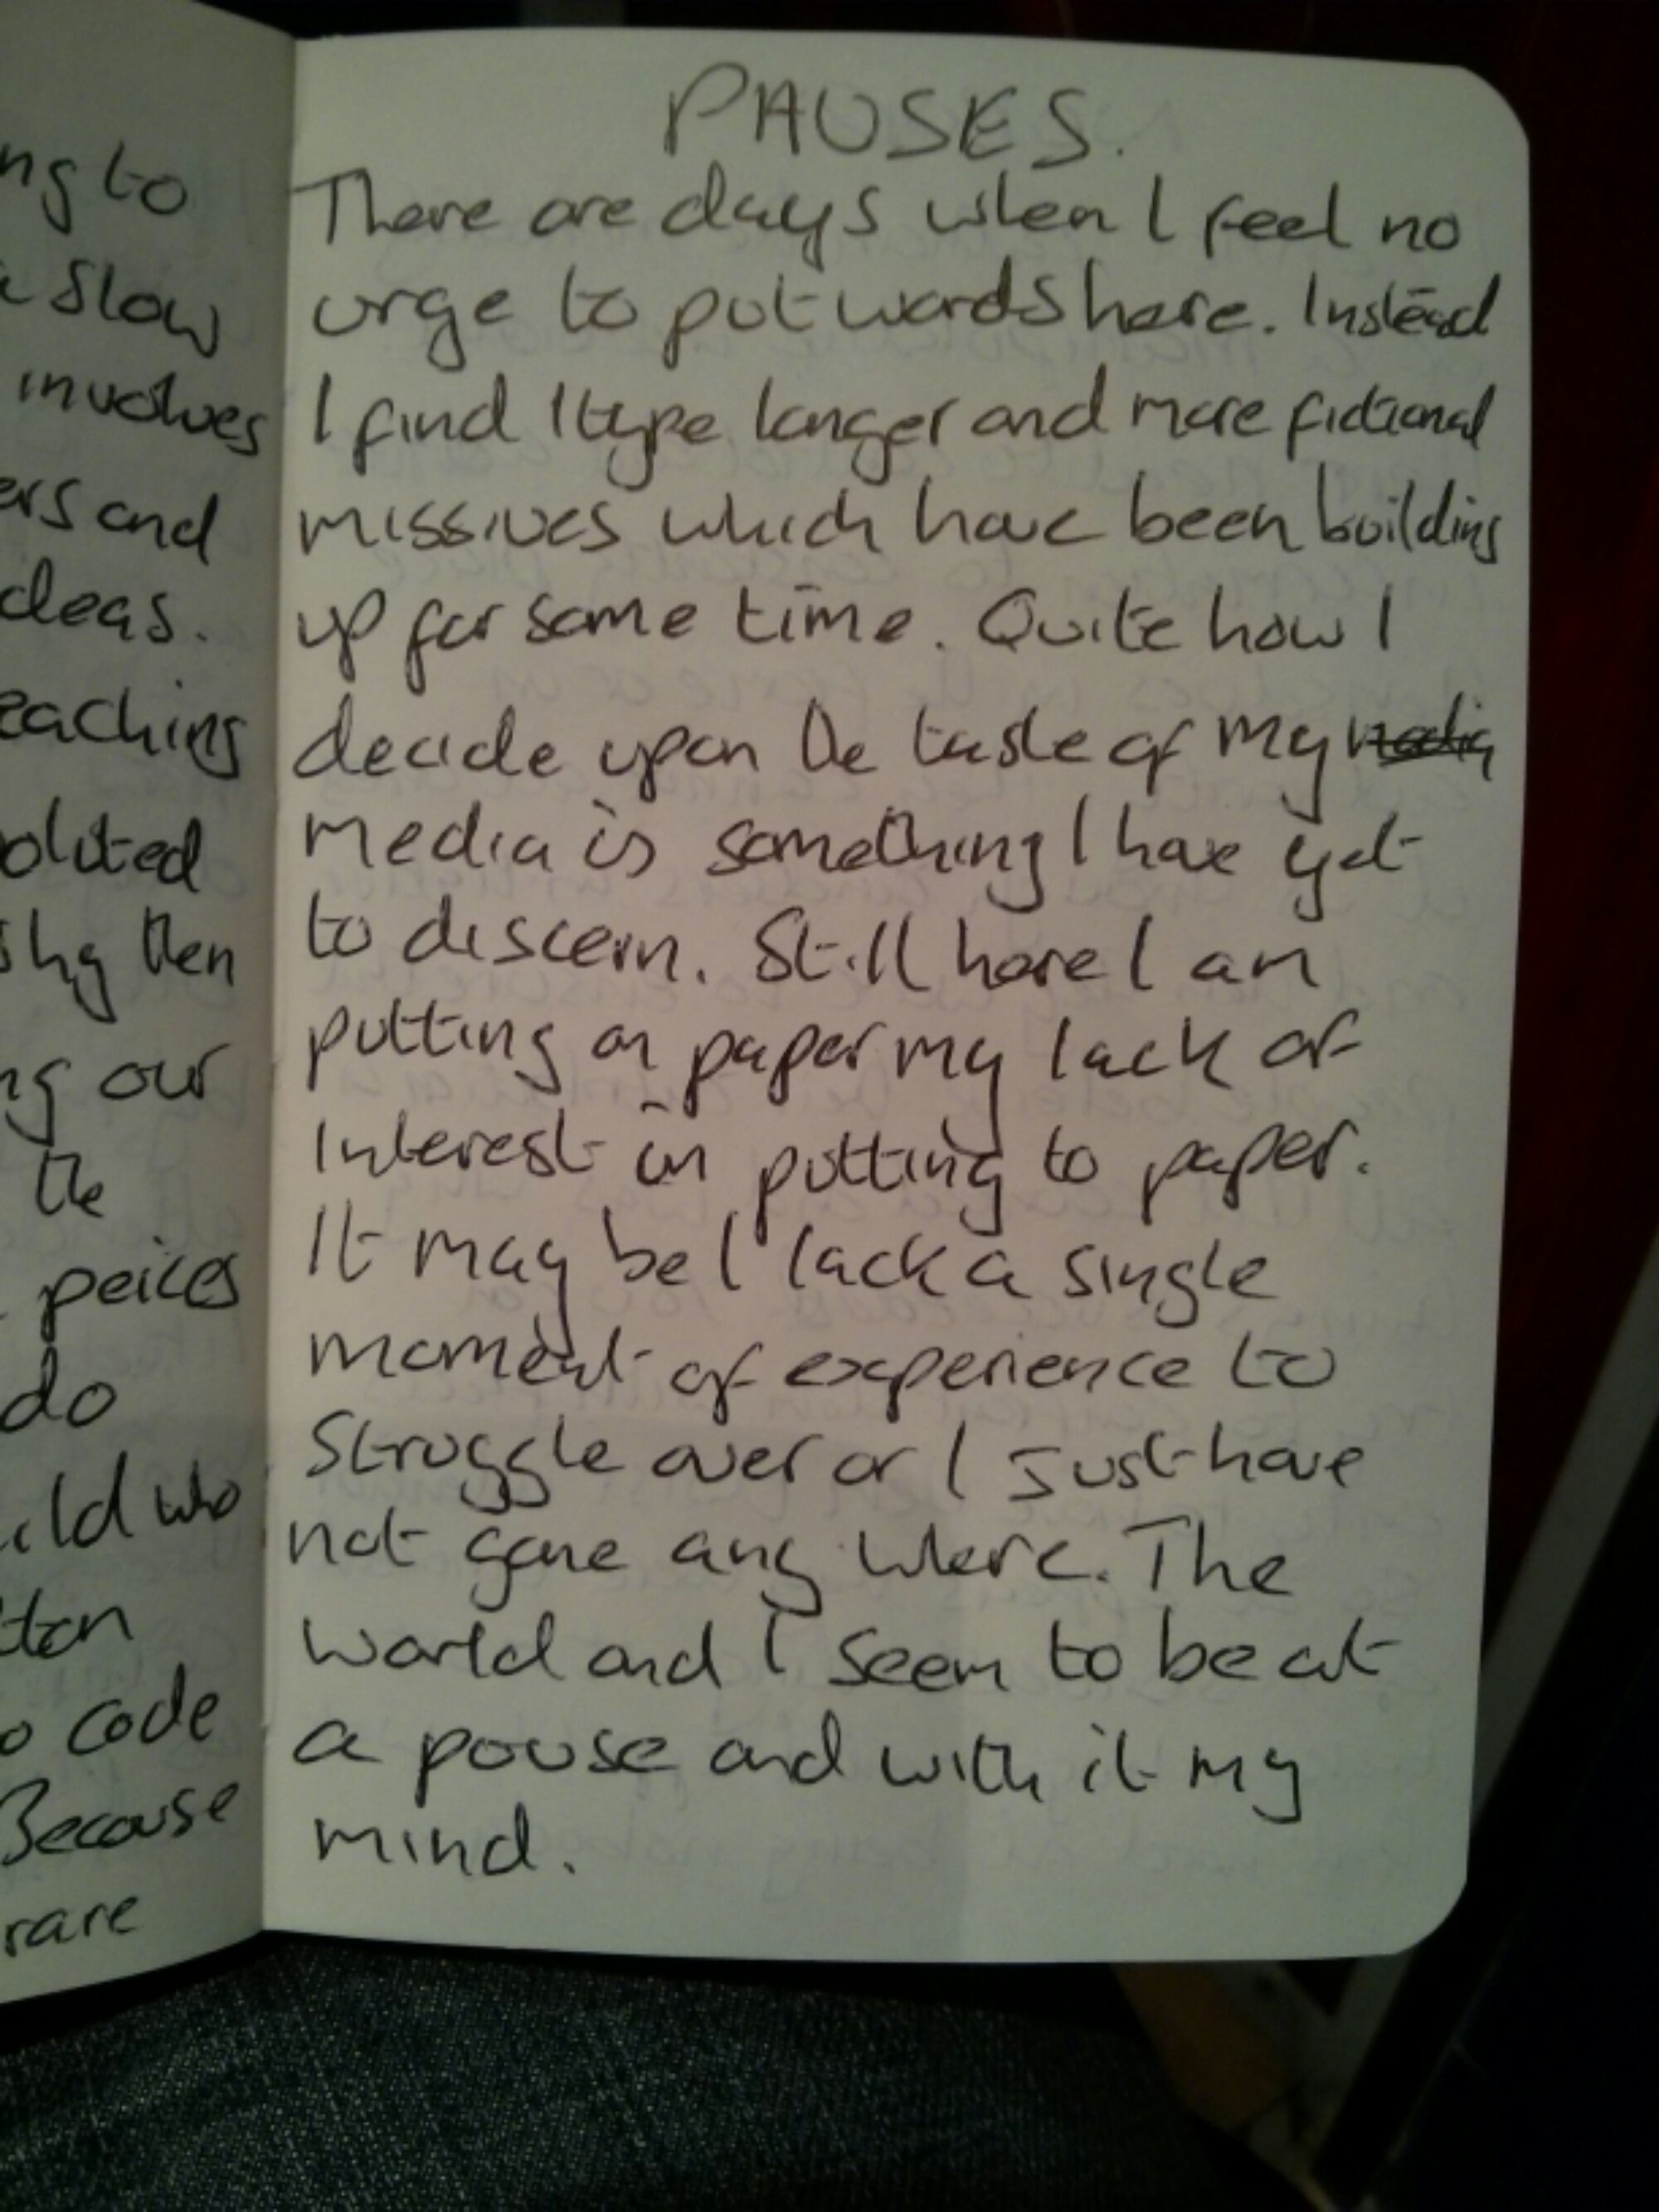 ng to
slow
involves
ers and
deas.
eaching
oluted
then
ng our
the
peices
do
ild who
tten
o code
Because
rare
PAUSES.
There are days when I feel no
urge to put words here. Instead
I find I type longer and more fictional
missives which have been building
up for some time. Quite how I
decide upon the taste of my
media is something I have yet
to discern. Still here I am
putting on paper my lack of
interest in putting to paper.
It may be I lack a single
moment of experience to
struggle over or I just have
not gone any where. The
world and I seem to be at
a pause and with it my
mind.